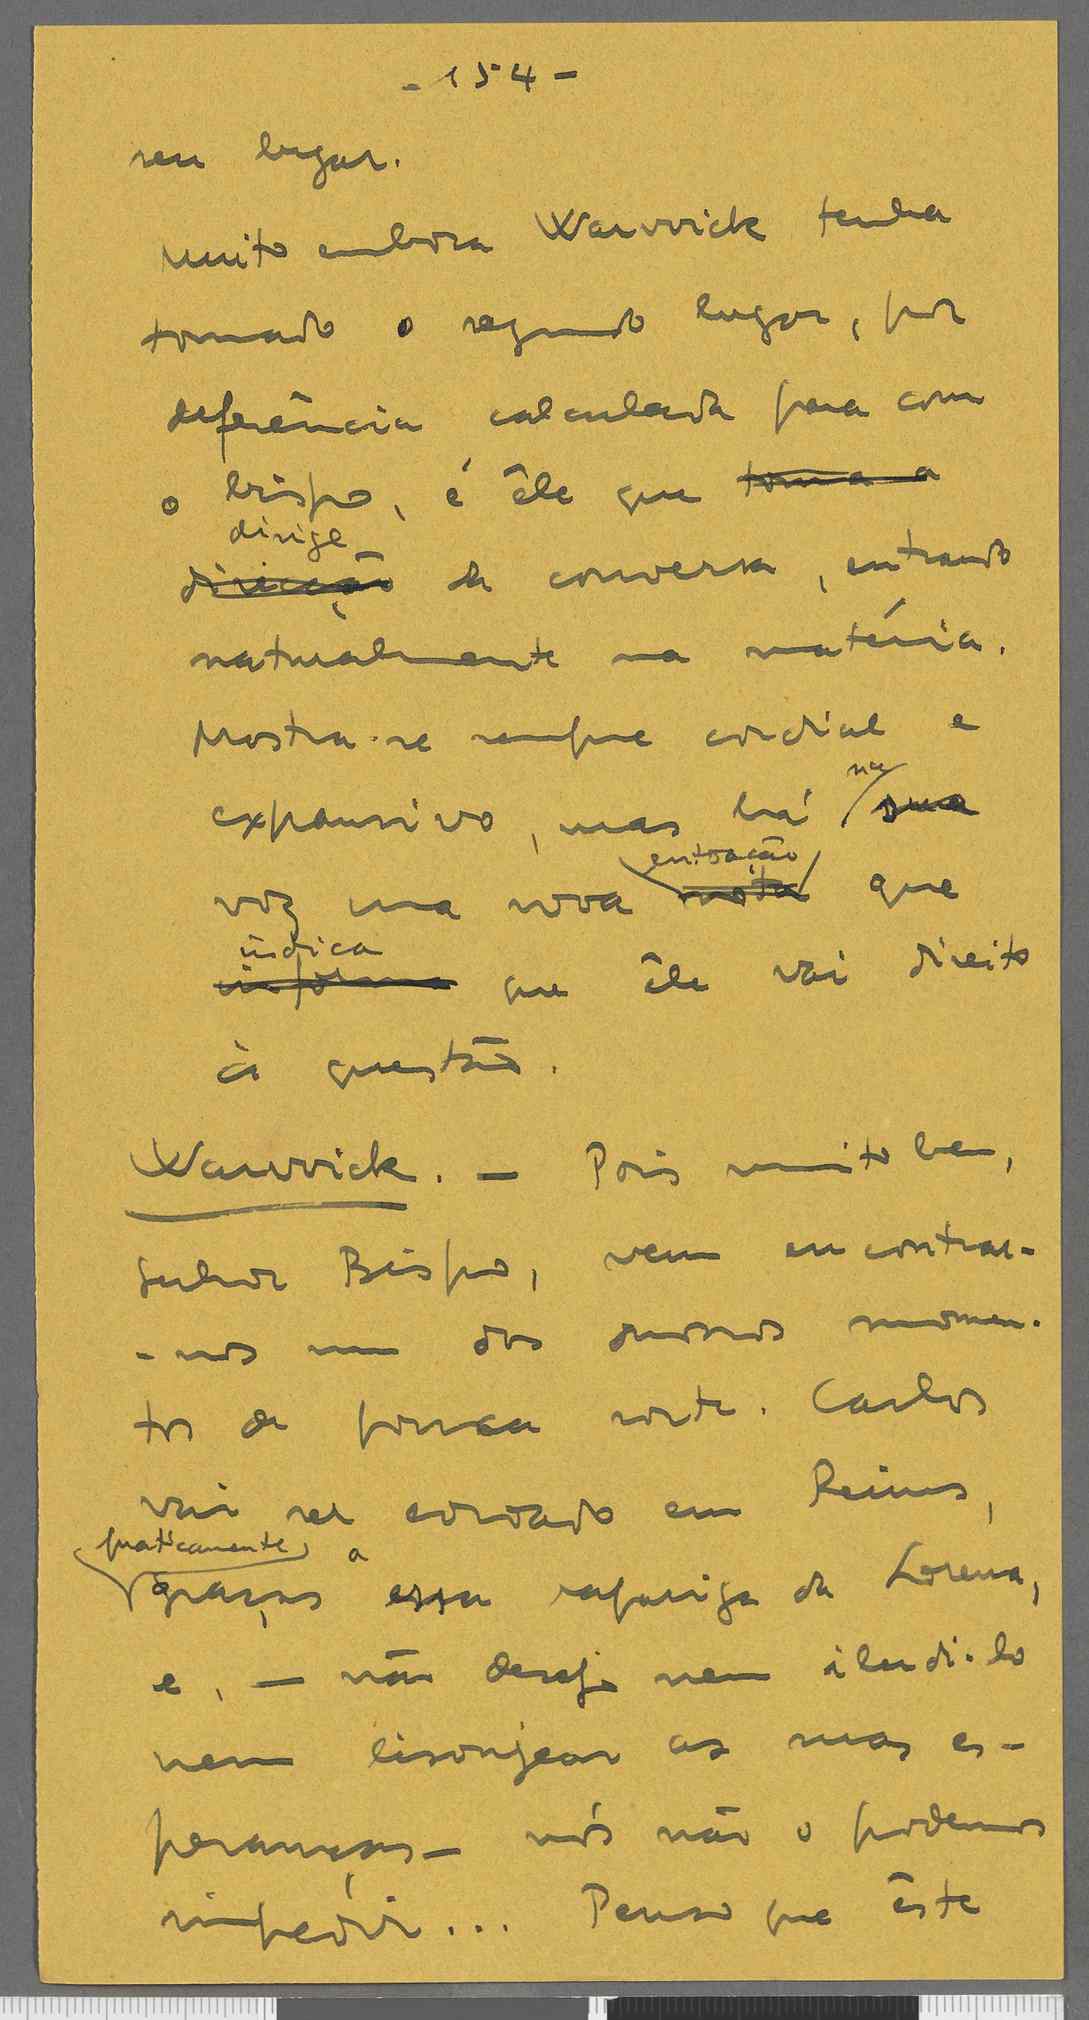 - 154 -
seu lugar.
Muito embora Warwick tenha
tomado o segundo lugar, por
deferência calculada para com
o bispo, é êle que toma a
dirige
direcção da conversa, entrando
naturalmente na matéria.
Mostra-se sempre cordial e
na
expansivo, mas há sua
entoação
voz uma nova nota que
indica
informa que êle vai direito
à questão.
Warwick. - Pois muito bem,
Senhor Bispo, vem encontrar-
-nos num dos nossos momen-
tos de pouca sorte. Carlos
vai ser coroado em Reims,
praticamente a
graças essa rapariga da Lorena,
e, - não desejo nem iludi-lo
nem lisonjear as suas es-
peranças - nós não o podemos
impedir... Penso que êste